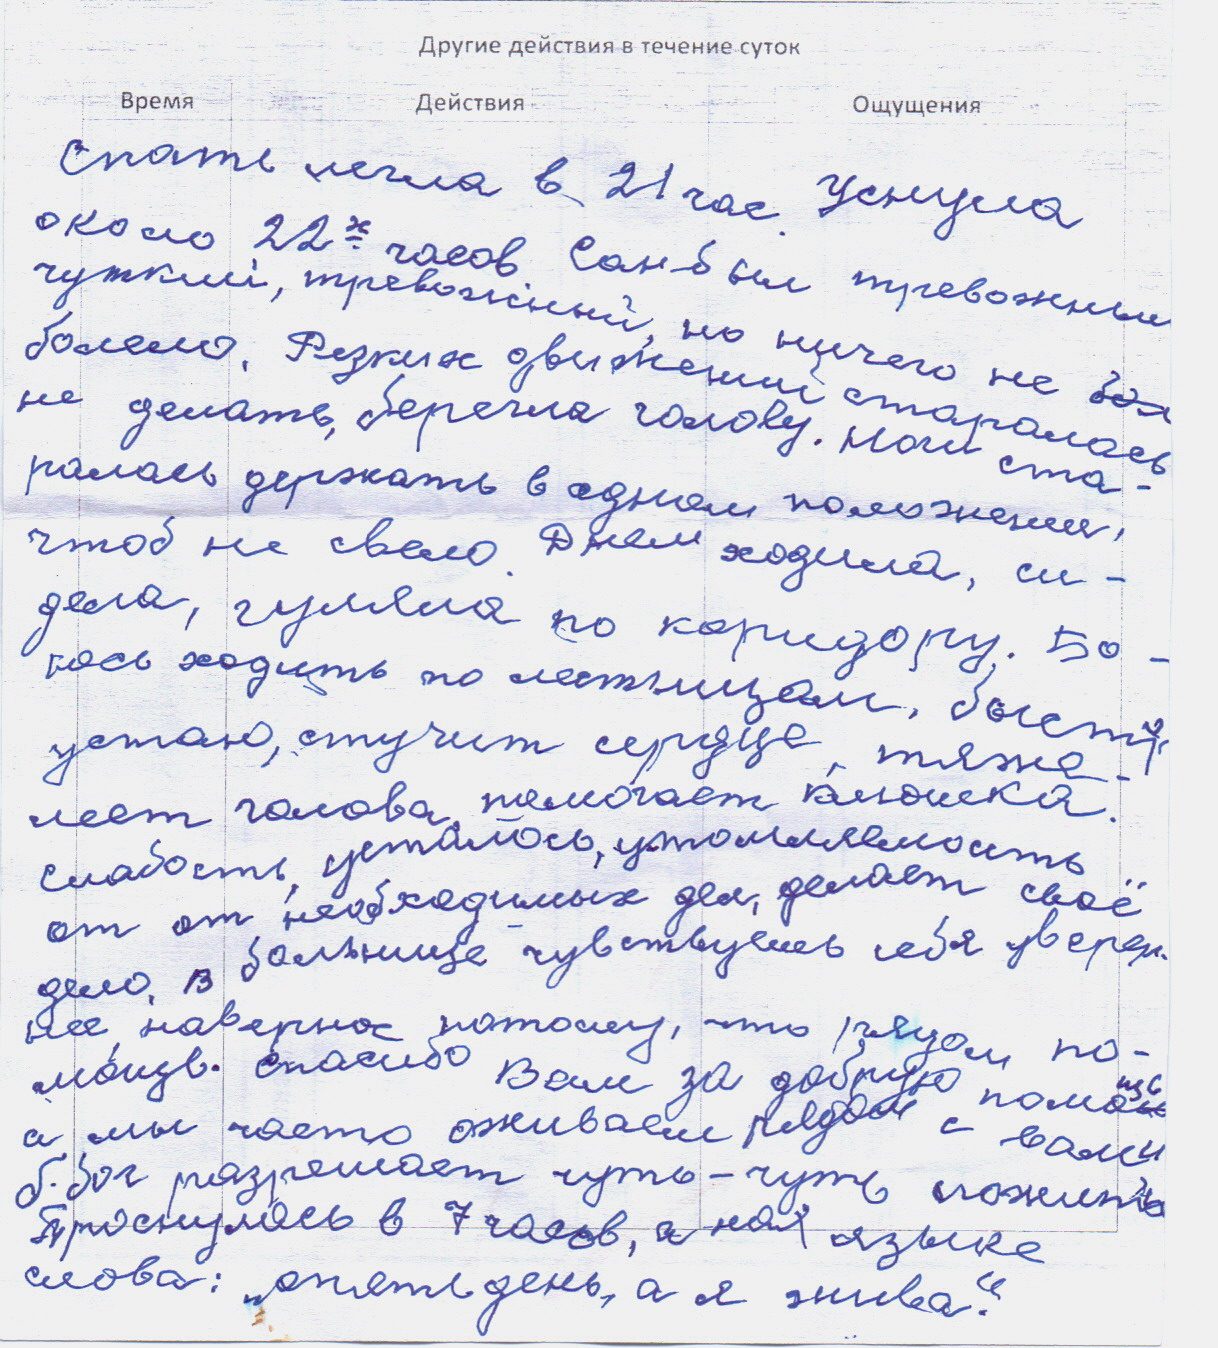 Другие действия в течение суток
Время Действия Ощущения
Спать легла в 21 час. Уснула
около 22х часов Сон был тревожным
чуткий, тревожный, но ничего не бол
болело. Резких движений старалась
не делать, берегла голову. Ноги ста-
ралась держать в одном положении,
чтоб не свело. Днем ходила, си-
дела, гуляла по коридору. Бо-
юсь ходить по лестницам, быстро
устаю, стучит сердце, тяже-
леет голова, помогает клюшка.
Слабость, усталось, утомляемость
от от необходимых дел, делает своё
дело. В больнице чувствуешь себя уверен.
нее, наверное потому, что рядом по-
мощь. Спасибо Вам за добрую помощь
а мы часто оживаем рядом с вами
бог разрешает чуть-чуть пожить
Проснулась в 7 часов, а на языке
слова: „опять день, а я жива."